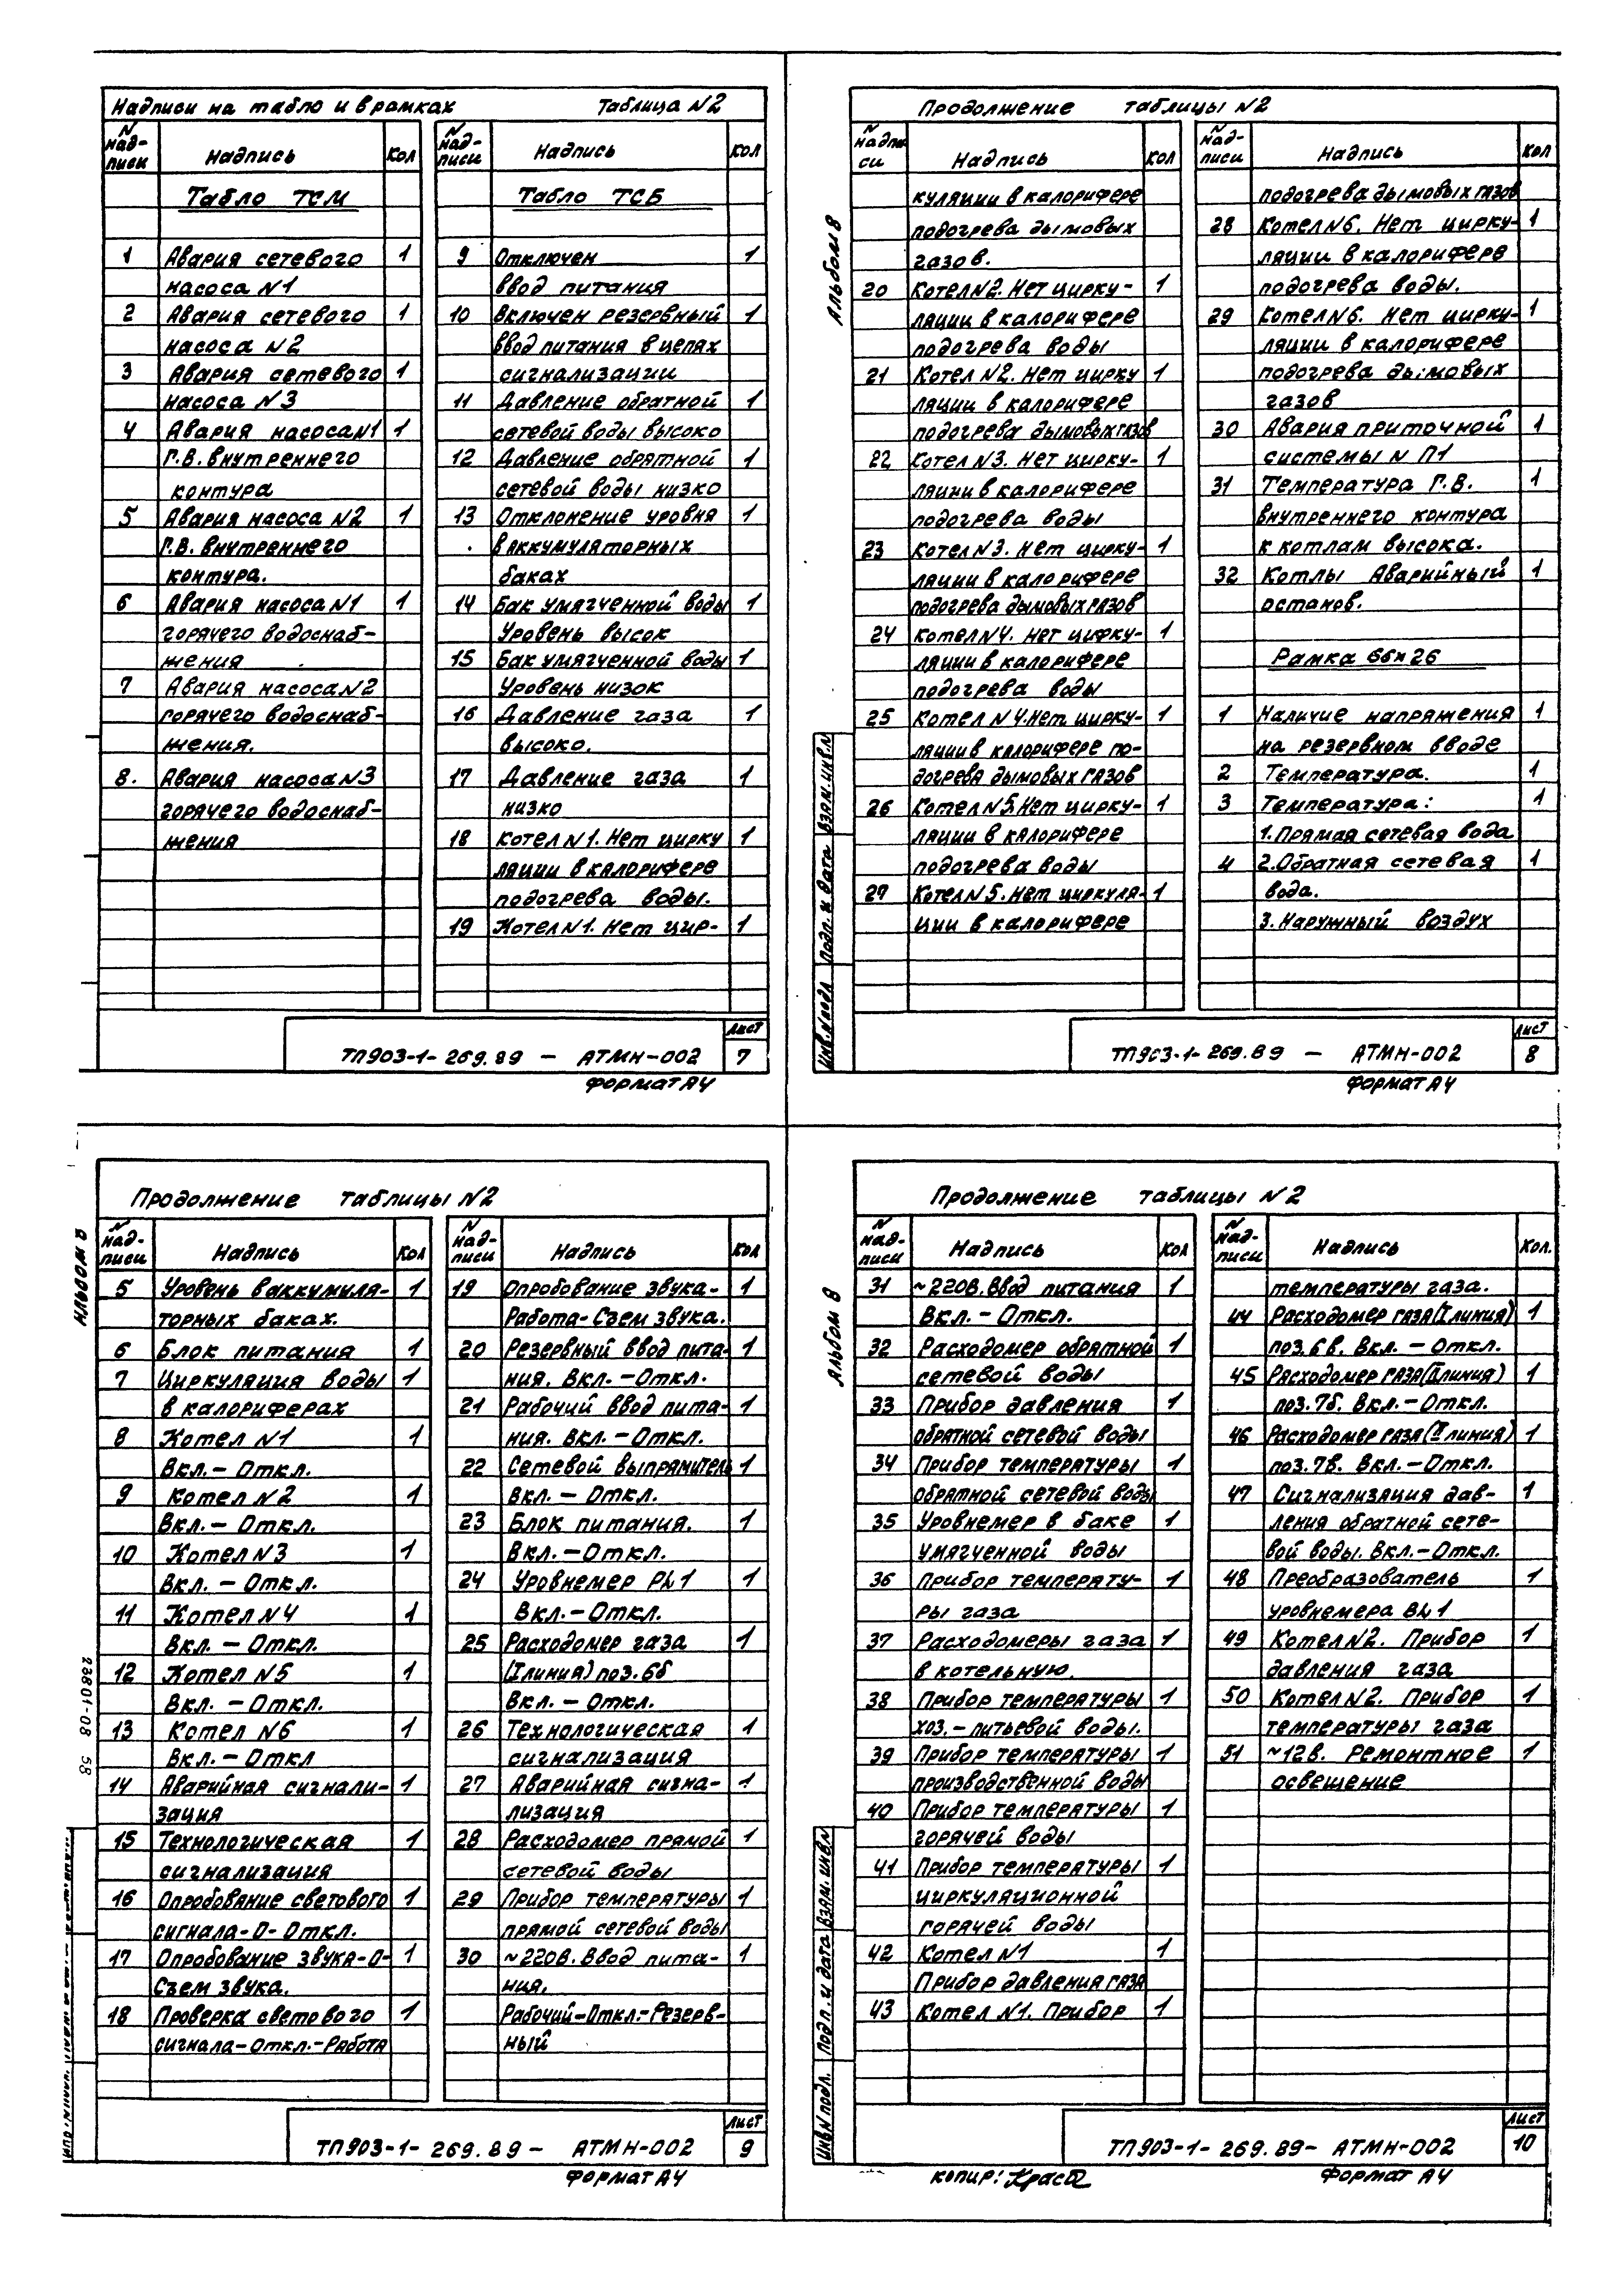 Надписи на табло и в рамках Таблица N2
N надписи Надпись Кол
Табло ТСМ
1 Авария сетевого 1
насоса N1
2 Авария сетевого 1
насоса N2
3 Авария сетевого 1
насоса N3
4 Авария насоса N1 1
Г.В. внутреннего
контура
5 Авария насоса N2 1
Г.В. внутреннего
контура.
6 Авария насоса N1 1
горячего водоснаб-
жения
7 Авария насоса N2
горячего водоснаб-
жения.
8. Авария насоса N3
горячего водоснаб-
жения
N над-писи Надпись Кол
Табло ТСБ
9 Отключен 1
ввод питания
10 Включен резервный 1
ввод питания в цепях
сигнализации
11 Давление обратной 1
сетевой воды высоко
12 Давление обратной 1
сетевой воды низко
13 Отклонение уровня 1
в аккумуляторных
баках
14 Бак умягченной воды 1
Уровень высок
15 Бак умягченной воды 1
Уровень низок
16 Давление газа 1
высоко.
17 Давление газа 1
низко
18 Котел N1. Нет цирку 1
ляции в калорифере
подогрева воды.
19 Котел N1. Нет цир- 1
ТП903-1-269.89 – АТМН-002
Лист
7
Формат А4
Альбом 8
Продолжение таблицы N2
N надпи си Надпись Кол
куляции в калорифере
подогрева дымовых
газов.
20 Котел N2. Нет цирку- 1
ляции в калорифере
подогрева воды
21 Котел N2. Нет цирку 1
ляции в калорифере
подогрева дымовых газов
22 Котел N3. Нет цирку- 1
ляции в калорифере
подогрева воды
23 Котел N3. Нет цирку- 1
ляции в калорифере
подогрева дымовых газов
24 Котел N4. Нет цирку- 1
ляции в калорифере
подогрева воды
25 Котел N4. Нет цирку- 1
ляции в калорифере по-
догрева дымовых газов
26 Котел N5. Нет цирку- 1
ляции в калорифере
подогрева воды
27 Котел N5. Нет циркуля- 1
ции в калорифере
N над-писи Надпись Кол
подогрева дымовых газов
28 Котел N6. Нет цирку- 1
ляции в калорифере
подогрева воды.
29 Котел N6. Нет цирку- 1
ляции в калорифере
подогрева дымовых
газов
30 Авария приточной 1
системы N П1
31 Температура Г.В. 1
внутреннего контура
к котлам высока.
32 Котлы Аварийный 1
останов.
Рамка 66×26
1 Наличие напряжения 1
на резервном вводе
2 Температура. 1
3 Температура: 1
1. Прямая сетевая вода
4 2. Обратная сетевая 1
вода.
3. Наружный воздух
Инв. N подл Подп. и дата Взам. инв. N
ТП903-1-269.89 – АТМН-002
Лист
8
Формат А4
Альбом 8
Продолжение таблицы N2
N над-писи Надпись Кол
5 Уровень в аккумуля- 1
торных баках.
6 Блок питания 1
7 Циркуляция воды 1
в калориферах
8 Котел N1 1
Вкл. – Откл.
9 Котел N2 1
Вкл. – Откл.
10 Котел N3 1
Вкл. – Откл.
11 Котел N4 1
Вкл. – Откл.
12 Котел N5 1
Вкл. – Откл.
13 Котел N6 1
Вкл. – Откл
14 Аварийная сигнали- 1
зация
15 Технологическая 1
сигнализация
16 Опробование светового 1
сигнала-О-Откл.
17 Опробование звука-О- 1
Съем звука.
18 Проверка светового 1
сигнала-Откл.-Работа
N над-писи Надпись Кол
19 Опробование звука- 1
Работа-Съем звука.
20 Резервный ввод пита- 1
ния. Вкл. – Откл.
21 Рабочий ввод пита- 1
ния. Вкл. – Откл.
22 Сетевой выпрямитель 1
Вкл. – Откл.
23 Блок питания. 1
Вкл. – Откл.
24 Уровнемер PL1 1
Вкл. – Откл.
25 Расходомер газа 1
(I линия) поз. 6б
Вкл. – Откл.
26 Технологическая 1
сигнализация
27 Аварийная сигна- 1
лизация
28 Расходомер прямой 1
сетевой воды
29 Прибор температуры 1
прямой сетевой воды
30 ~220В. Ввод пита- 1
ния.
Рабочий-Откл.-Резерв-
ный
23801-08 58
ТП903-1-269.89 – АТМН-002
Лист
9
Формат А4
Альбом 8
Продолжение таблицы N2
N над-писи Надпись Кол
31 ~220В. Ввод питания 1
Вкл. – Откл.
32 Расходомер обратной 1
сетевой воды
33 Прибор давления 1
обратной сетевой воды
34 Прибор температуры 1
обратной сетевой воды
35 Уровнемер в баке 1
умягченной воды
36 Прибор температу- 1
ры газа
37 Расходомеры газа 1
в котельную.
38 Прибор температуры 1
хоз.-питьевой воды.
39 Прибор температуры 1
производственной воды
40 Прибор температуры 1
горячей воды
41 Прибор температуры 1
циркуляционной
горячей воды
42 Котел N1 1
Прибор давления газа
43 Котел N1. Прибор 1
N над-писи Надпись Кол.
температуры газа.
44 Расходомер газа (I линия) 1
поз. 6в. Вкл. – Откл.
45 Расходомер газа (II линия) 1
поз. 7б. Вкл. – Откл.
46 Расходомер газа (II линия) 1
поз. 7в. Вкл. – Откл.
47 Сигнализация дав- 1
ления обратной сете-
вой воды. Вкл. – Откл.
48 Преобразователь 1
уровнемера BL1
49 Котел N2. Прибор 1
давления газа
50 Котел N2. Прибор 1
температуры газа
51 ~12в. Ремонтное 1
освещение
Инв. N подл. Подп. и дата Взам. инв. N
ТП903-1-269.89 – АТМН-002
Лист
10
Копир:
Формат А4